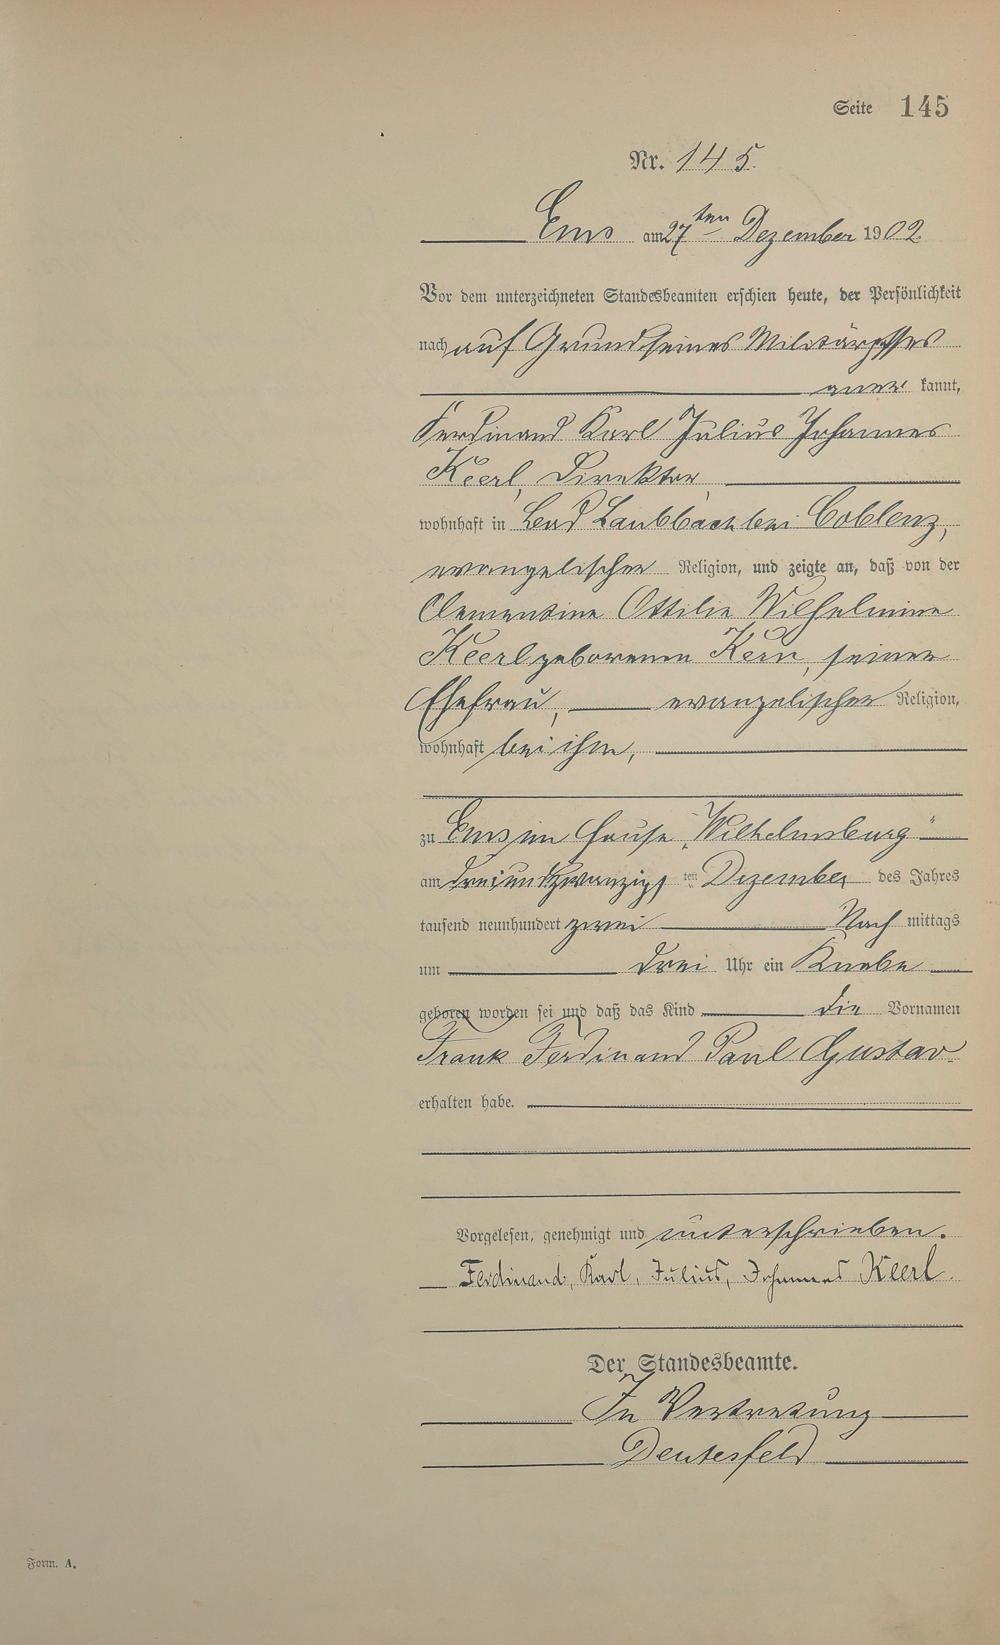 Seite 145
Nr. 145.
Ems am 27ten Dezember 1902.
Vor dem unterzeichneten Standesbeamten erschien heute, der Persönlichkeit
nach auf Grund seines Militärpasses
aner kannt,
Ferdinand Karl Julius Johannes
Keerl, Direktor,
wohnhaft in Bad Laubbach bei Coblenz,
evangelischer Religion, und zeigte an, daß von der
Clementine Ottilie Wilhelmine
Keerl geborenen Kern, seiner
Ehefrau, evangelischer Religion,
wohnhaft bei ihm,
zu Ems im Hause „Wilhelmsburg“
am dreiundzwanzigsten Dezember des Jahres
tausend neunhundert zwei Nach mittags
um drei Uhr ein Knabe
geboren worden sei und daß das Kind die Vornamen
Frank Ferdinand Paul Gustav
erhalten habe.
Vorgelesen, genehmigt und unterschrieben.
Ferdinand, Karl, Julius, Johannes Keerl.
Der Standesbeamte.
In Vertretung
Form. A.